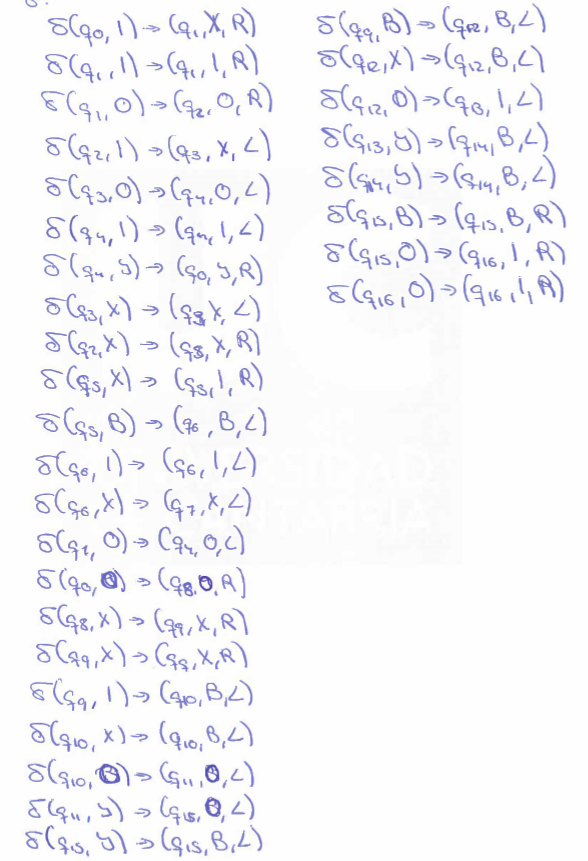 δ(q₀, 1) → (q₁, X, R)
δ(q₁, 1) → (q₁, 1, R)
δ(q₁, 0) → (q₂, 0, R)
δ(q₂, 1) → (q₃, X, L)
δ(q₃, 0) → (q₄, 0, L)
δ(q₄, 1) → (q₄, 1, L)
δ(q₄, y) → (q₀, y, R)
δ(q₃, X) → (q₃, X, L)
δ(q₂, X) → (q₈, X, R)
δ(q₅, X) → (q₅, 1, R)
δ(q₅, B) → (q₆, B, L)
δ(q₆, 1) → (q₆, 1, L)
δ(q₆, X) → (q₇, X, L)
δ(q₇, 0) → (q₄, 0, L)
δ(q₀, 0) → (q₈, 0, R)
δ(q₈, X) → (q₉, X, R)
δ(q₉, X) → (q₉, X, R)
δ(q₉, 1) → (q₁₀, B, L)
δ(q₁₀, X) → (q₁₀, B, L)
δ(q₁₀, 0) → (q₁₁, 0, L)
δ(q₁₁, y) → (q₁₅, 0, L)
δ(q₁₅, y) → (q₁₅, B, L)
δ(q₉, B) → (q₁₂, B, L)
δ(q₁₂, X) → (q₁₂, B, L)
δ(q₁₂, 0) → (q₁₃, 1, L)
δ(q₁₃, y) → (q₁₄, B, L)
δ(q₁₄, y) → (q₁₄, B, L)
δ(q₁₅, B) → (q₁₅, B, R)
δ(q₁₅, 0) → (q₁₆, 1, R)
δ(q₁₆, 0) → (q₁₆, 1, R)